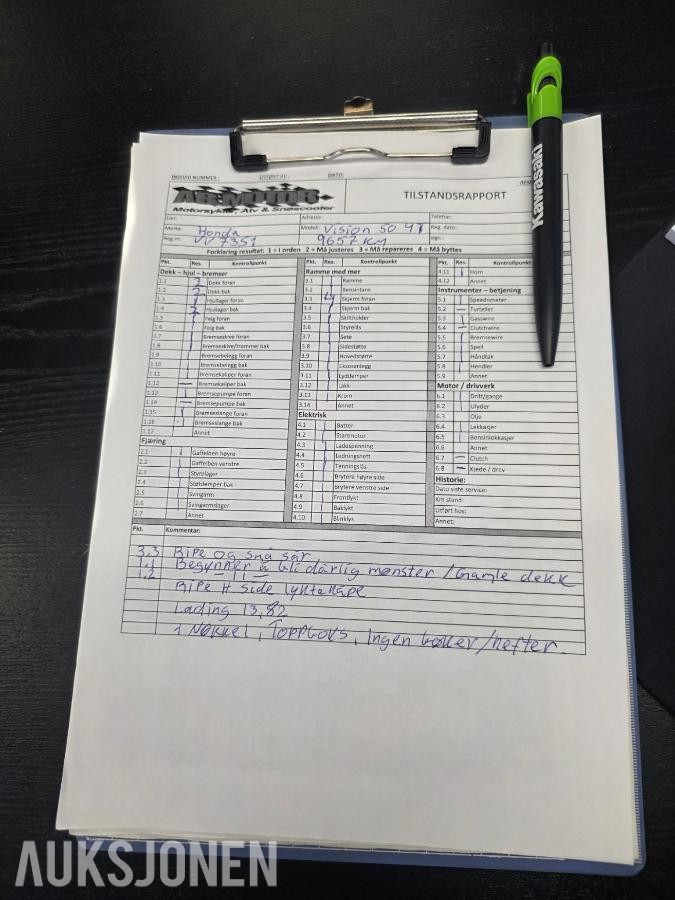 INDIVID NUMMER: UTFØRT AV: DATO:
Motorsykler, Atv & Snøscooter
TILSTANDSRAPPORT
Eier: Adresse: Telefon:
Merke: Honda Modell: Vision 50 4T Reg. dato:
Reg.nr: UV 7351 9657 KM Sign.:
Forklaring resultat: 1 = I orden 2 = Må justeres 3 = Må repareres 4 = Må byttes
Pkt. Res. Kontrollpunkt
Dekk – hjul – bremser
1.1 2 Dekk foran
1.2 2 Dekk bak
1.3 Hjullager foran
1.4 Hjullager bak
1.5 Felg foran
1.6 Felg bak
1.7 Bremseskive foran
1.8 Bremseskive/trommel bak
1.9 Bremsebelegg foran
1.10 Bremsebelegg bak
1.11 Bremsekaliper foran
1.12 — Bremsekaliper bak
1.13 Bremsepumpe foran
1.14 — Bremsepumpe bak
1.15 Bremseslange foran
1.16 Bremseslange bak
1.17 Annet
Fjæring
2.1 Gaffelben høyre
2.2 Gaffelben venstre
2.3 Styrelager
2.4 Støtdemper bak
2.5 Svingarm
2.6 Svingarmslager
2.7 Annet
Pkt. Res. Kontrollpunkt
Ramme med mer
3.1 Ramme
3.2 Bensintank
3.3 4 Skjerm foran
3.4 Skjerm bak
3.5 Skiltholder
3.6 Styrelås
3.7 Sete
3.8 Sidestøtte
3.9 Hovedstøtte
3.10 Eksosanlegg
3.11 Lyddemper
3.12 Lakk
3.13 Krom
3.14 Annet
Elektrisk
4.1 Batter
4.2 Startmotor
4.3 Ladespenning
4.4 Ledningsnett
4.5 Tenningslås
4.6 Brytere høyre side
4.7 Brytere venstre side
4.8 Frontlykt
4.9 Baklykt
4.10 Blinklys
Pkt. Res. Kontrollpunkt
4.11 Horn
4.12 Annet
Instrumenter – betjening
5.1 Speedometer
5.2 — Turteller
5.3 Gasswire
5.4 — Clutchwire
5.5 Bremsewire
5.6 Speil
5.7 Håndtak
5.8 Hendler
5.9 Annet
Motor / drivverk
6.1 Drift/gange
6.2 Ulyder
6.3 Olje
6.4 Lekkasjer
6.5 Bensinlekkasjer
6.6 Annet
6.7 — Clutch
6.8 — Kjede / drev
Historie:
Dato siste service:
Km stand:
Utført hos:
Annet:
Pkt. Kommentar:
3.3 Ripe og små sår
1.1 Begynner å bli dårlig mønster / Gamle dekk
1.2 — 11 —
Ripe H side lyktekåpe
Lading 13,82
1 Nøkkel, Toppboks, Ingen bøker/hefter.
Kawasaki
AUKSJONEN